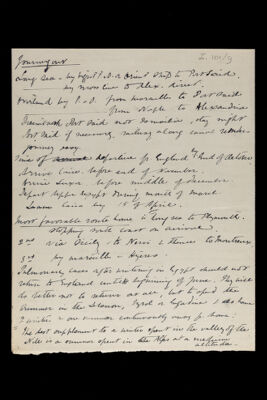 I. 101/9
Journey out
Long sea - by P. & O. or Orient Ship to Port Said.
by line to Alex. direct.
Overland by P. & O. from Marseilles to Port Said
from Naples to Alexandria
Port Said not desirable, stay night
Port Said if necessary, railway along canal
journey easy.
Time of departure fr England End of October
Arrive Cairo before end of November.
Arrive Luxor before middle of December.
Depart Upper Egypt during month of March
Leave Cairo by 15th of April.
Most favorable route home is long sea to Plymouth.
stopping west coast on arrival
2nd via Sicily to Nervi & thence to Montreux
3rd by Marseilles - Hyeres.
Pulmonary cases after wintering in Egypt should not
return to England until beginning of June. They will
do better not to return at all but to spend the
summer in the Lebanon, Tyrol or Engadine &
2 winters & one summer continuously away fr home.
The best supplement to a winter spent in the valley of the
Nile is a summer spent in the Alps at a medium
altitude